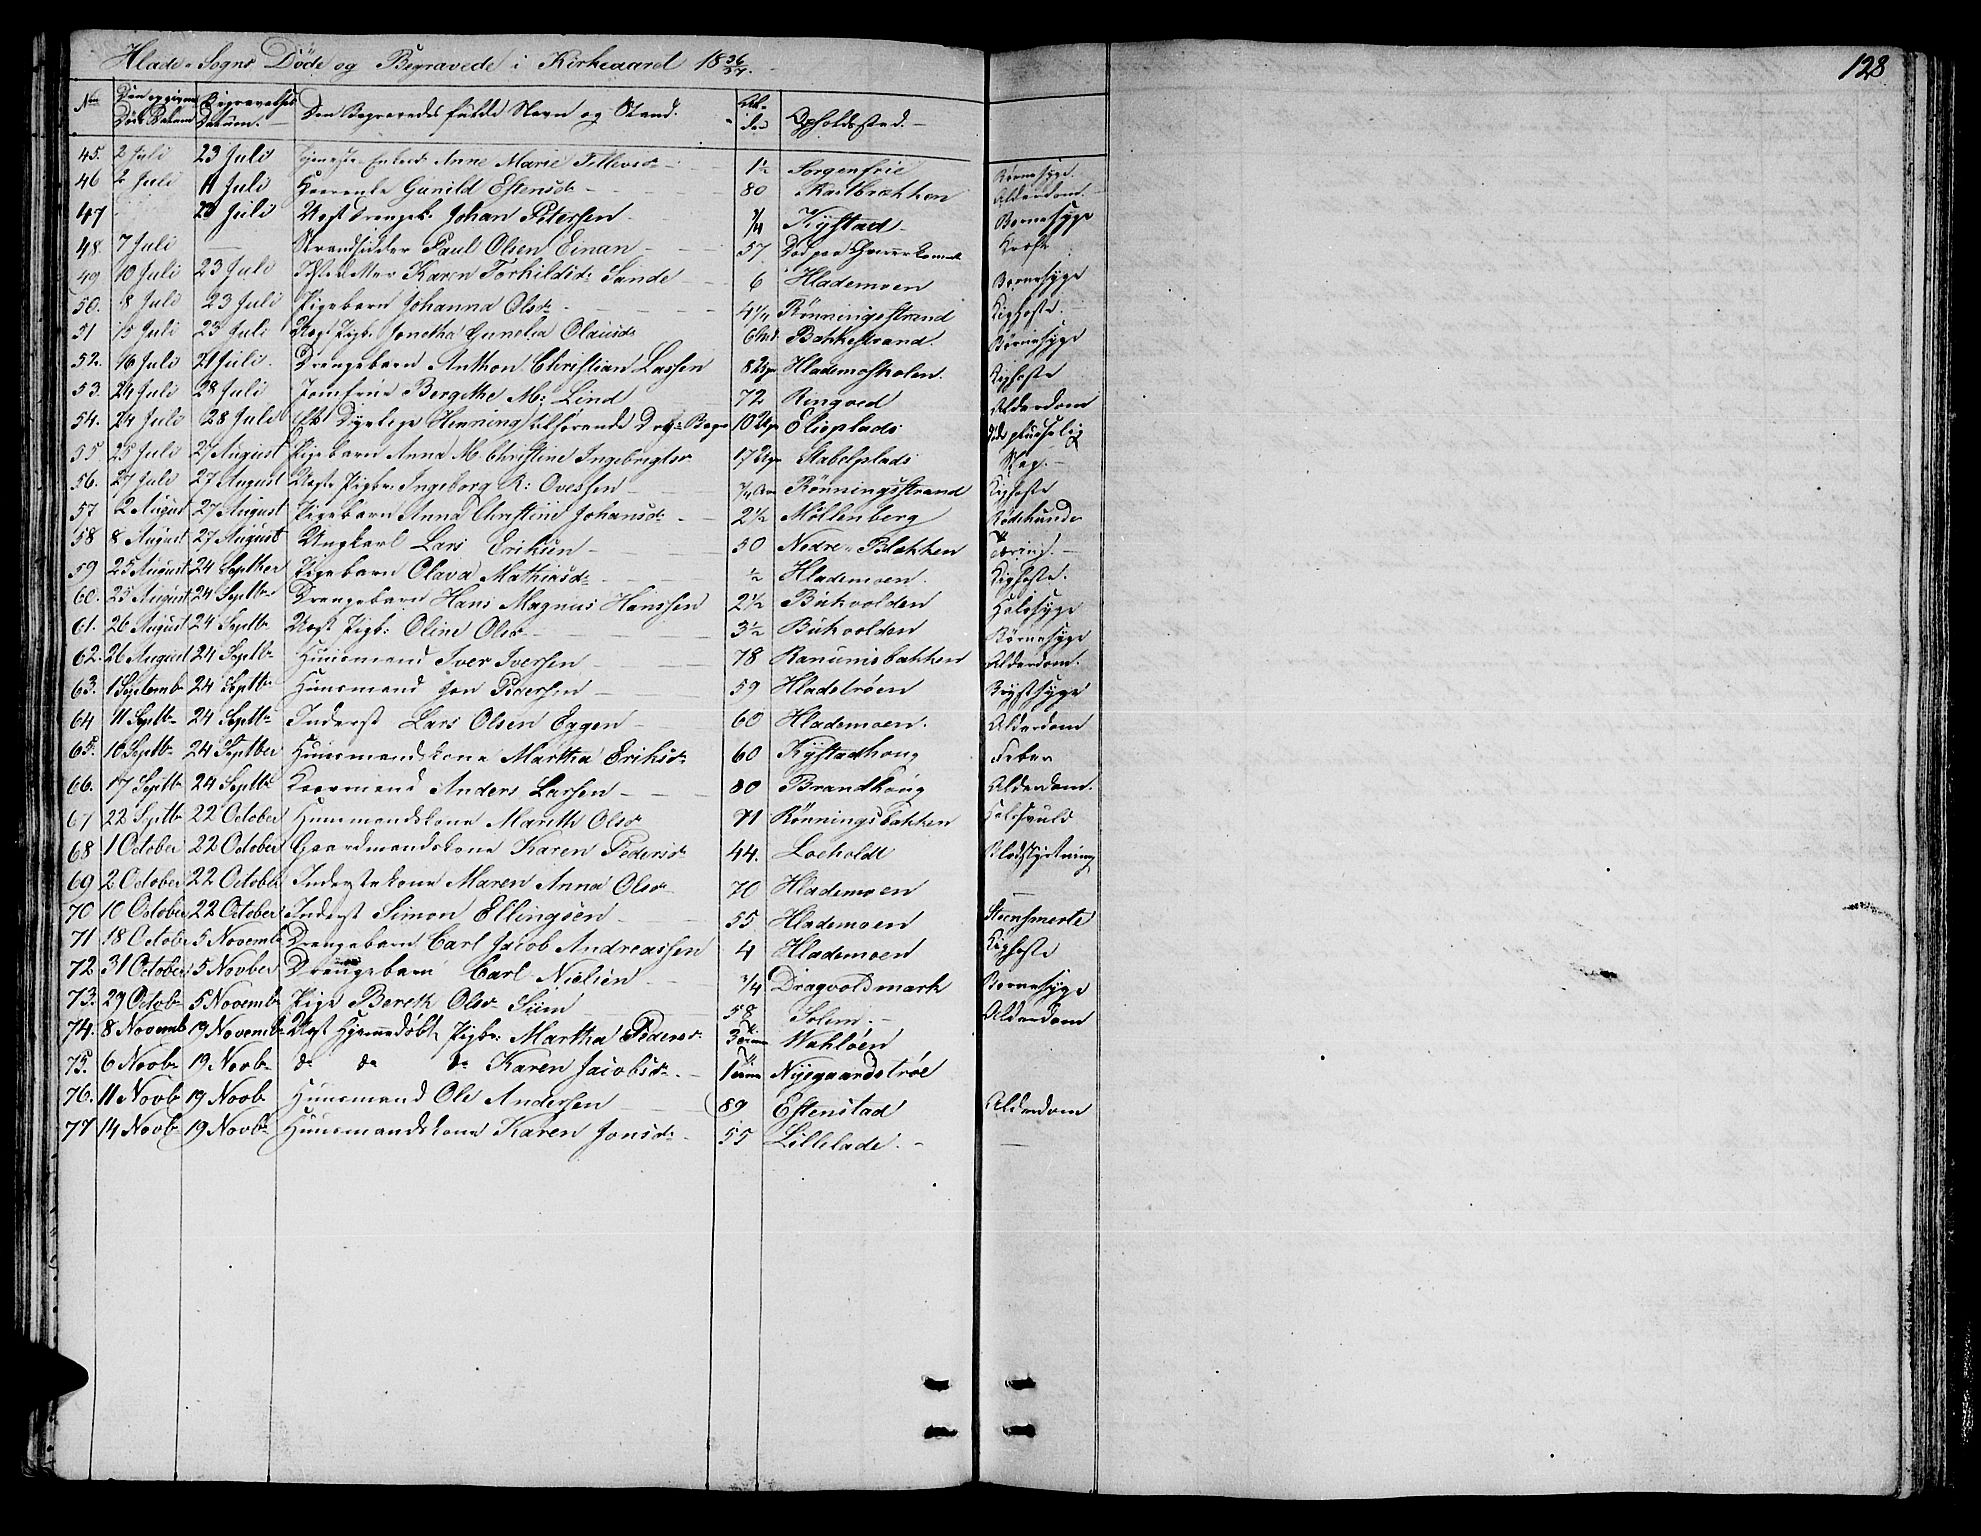 128
Hlade Sogns Døde og Begravede i Kirkeaaret 18 36/37.
No Den opgivne Døds Datum Begravelses Datum. Den Begravedes fulde Navn og Stand. Alder Opholdssted.
45. 2 Juli 23 Juli Anne Marie 1½ Sorgenfrie Børnesyge.
46 2 Juli 11 Juli Gunild Estensdr 80 Alderdom.
47 23 Juli Johan Petersen ¾ Kystad Børnesyge
48. 7 Juli Strandsidder Paul Olsen Einan 57. Død paa
49 10 Juli 23 Juli Karen Torkildsdr Sande 6 Hlademoen Børnesyge
50. 8 Juli 23 Juli Pigebarn Johanna Olsdr 4¼ Rönningsstrand Kighoste.
51 15 Juli 23 Juli Pigb. Jonetha Gunelia Olausdr Bakkestrand. Børnesyge
52. 16 Juli 21 Juli. Drengebarn Anthon Christian Lassen 8 Uger Hlademoskolen. Kighoste
53. 24 Juli 28 Juli Jomfrue Bergithe M: Lind 72 Ringved Alderdom
54. 24 Juli 28 Juli Henning 10 Uger Elieplads
55 25 Juli 27 August Pigebarn Anna M. Christine Ingebrigtsdr 17 Uger Stabelplads
56. 27 Juli 27 August Pigb: Ingeborg K: Ovessen Rönningsstrand Kighoste
57 2 August 27 August Pigebarn Anna Christine Johansdr 2½ Möllenberg Rødehunde
58 8 August 27 August Ungkarl Lars Eriksen 50 Nedre Blækken Tæring.
59 25 August 24 Septber Pigebarn Olava Mathiasdr ½ Hlademoen. Kighoste.
60. 25 August 24 Septbr Drengebarn Hans Magnus Hanssen 2½ Bukvolden Halssyge
61. 26 August 24 Septbr Pigb: Oline Olsdr 3½ Bukvolden Børnesyge
62. 26 August 24 Septbr Huusmand Iver Iversen 78 Ranumsbakken Alderdom.
63. 1 Septemb 24 Septbr Huusmand Jon Pedersen 59 Hladetröen Brystsyge
64 11 Septbr 24 Septbr Inderst Lars Olsen Eggen 60 Hlademoen. Alderdom
65. 10 Septbr 24 Septber Huusmandskone Martha Eriksdr 60 Kystadhoug Feber
66. 17 Septbr 24 Septbr Anders Larsen 80 Brandhoug Alderdom.
67 22 Septbr 22 October Huusmandskone Marith Olsdr 71 Rönningsbakken
68 1 October 22 October Gaardmandskone Karen Pedersdr 44. Loeholdt Blodstyrtning
69 2 October 22 October Inderstkone Maren Anna Olsdr 70 Hlademoen
70 10 October 22 October Inderst Simon Ellingsen 55 Hlademoen Steensmerte
71 18 October 5 Novemb Drengebarn Carl Jacob Andreassen 4 Hlademoen Kighoste
72 31 October 5 Novber Drengebarn Carl Nielsen ¾ Dragvoldmark Børnesyge
73. 29 Octob 5 Novemb Pige Bereth Olsdr Siim 58 Solem. Alderdom
74. 8 Novemb 19 Novemb Hjemmedøbt Pigb: Martha Pedersdr 3 Wahlöen
75. 6 Novbr 19 Novbr do do do Karen Jacobsdr. 1 Nyegaardströe
76. 11 Novb 19 Novb Huusmand Ole Andersen 89 Estenstad Alderdom
77 14 Novb 19 Novbr Huusmandskone Karen Jonsdr 55 Lillelade.